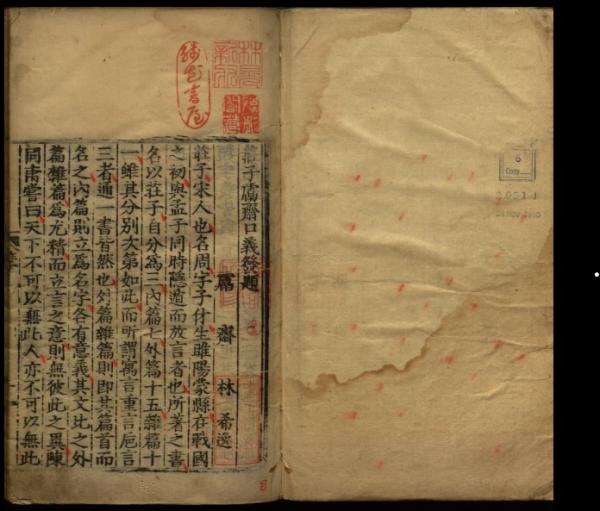 莊子鬳齋口義發題
鬳齋 林 希逸
莊子宋人也名周字子休生睢陽蒙縣在戰國
之初與孟子同時隱遁而放言者也所著之書
名以莊子自分為三內篇七外篇十五雜篇十
一雖其分別次第如此而所謂寓言重言卮言
三者通一書皆然也外篇雜篇則即其篇首而
名之內篇則立為名字各有意義其文比之外
篇雜篇為尤精而立言之意則無彼此之異陳
同甫嘗曰天下不可以無此人亦不可以無此
書屋
6
Copy